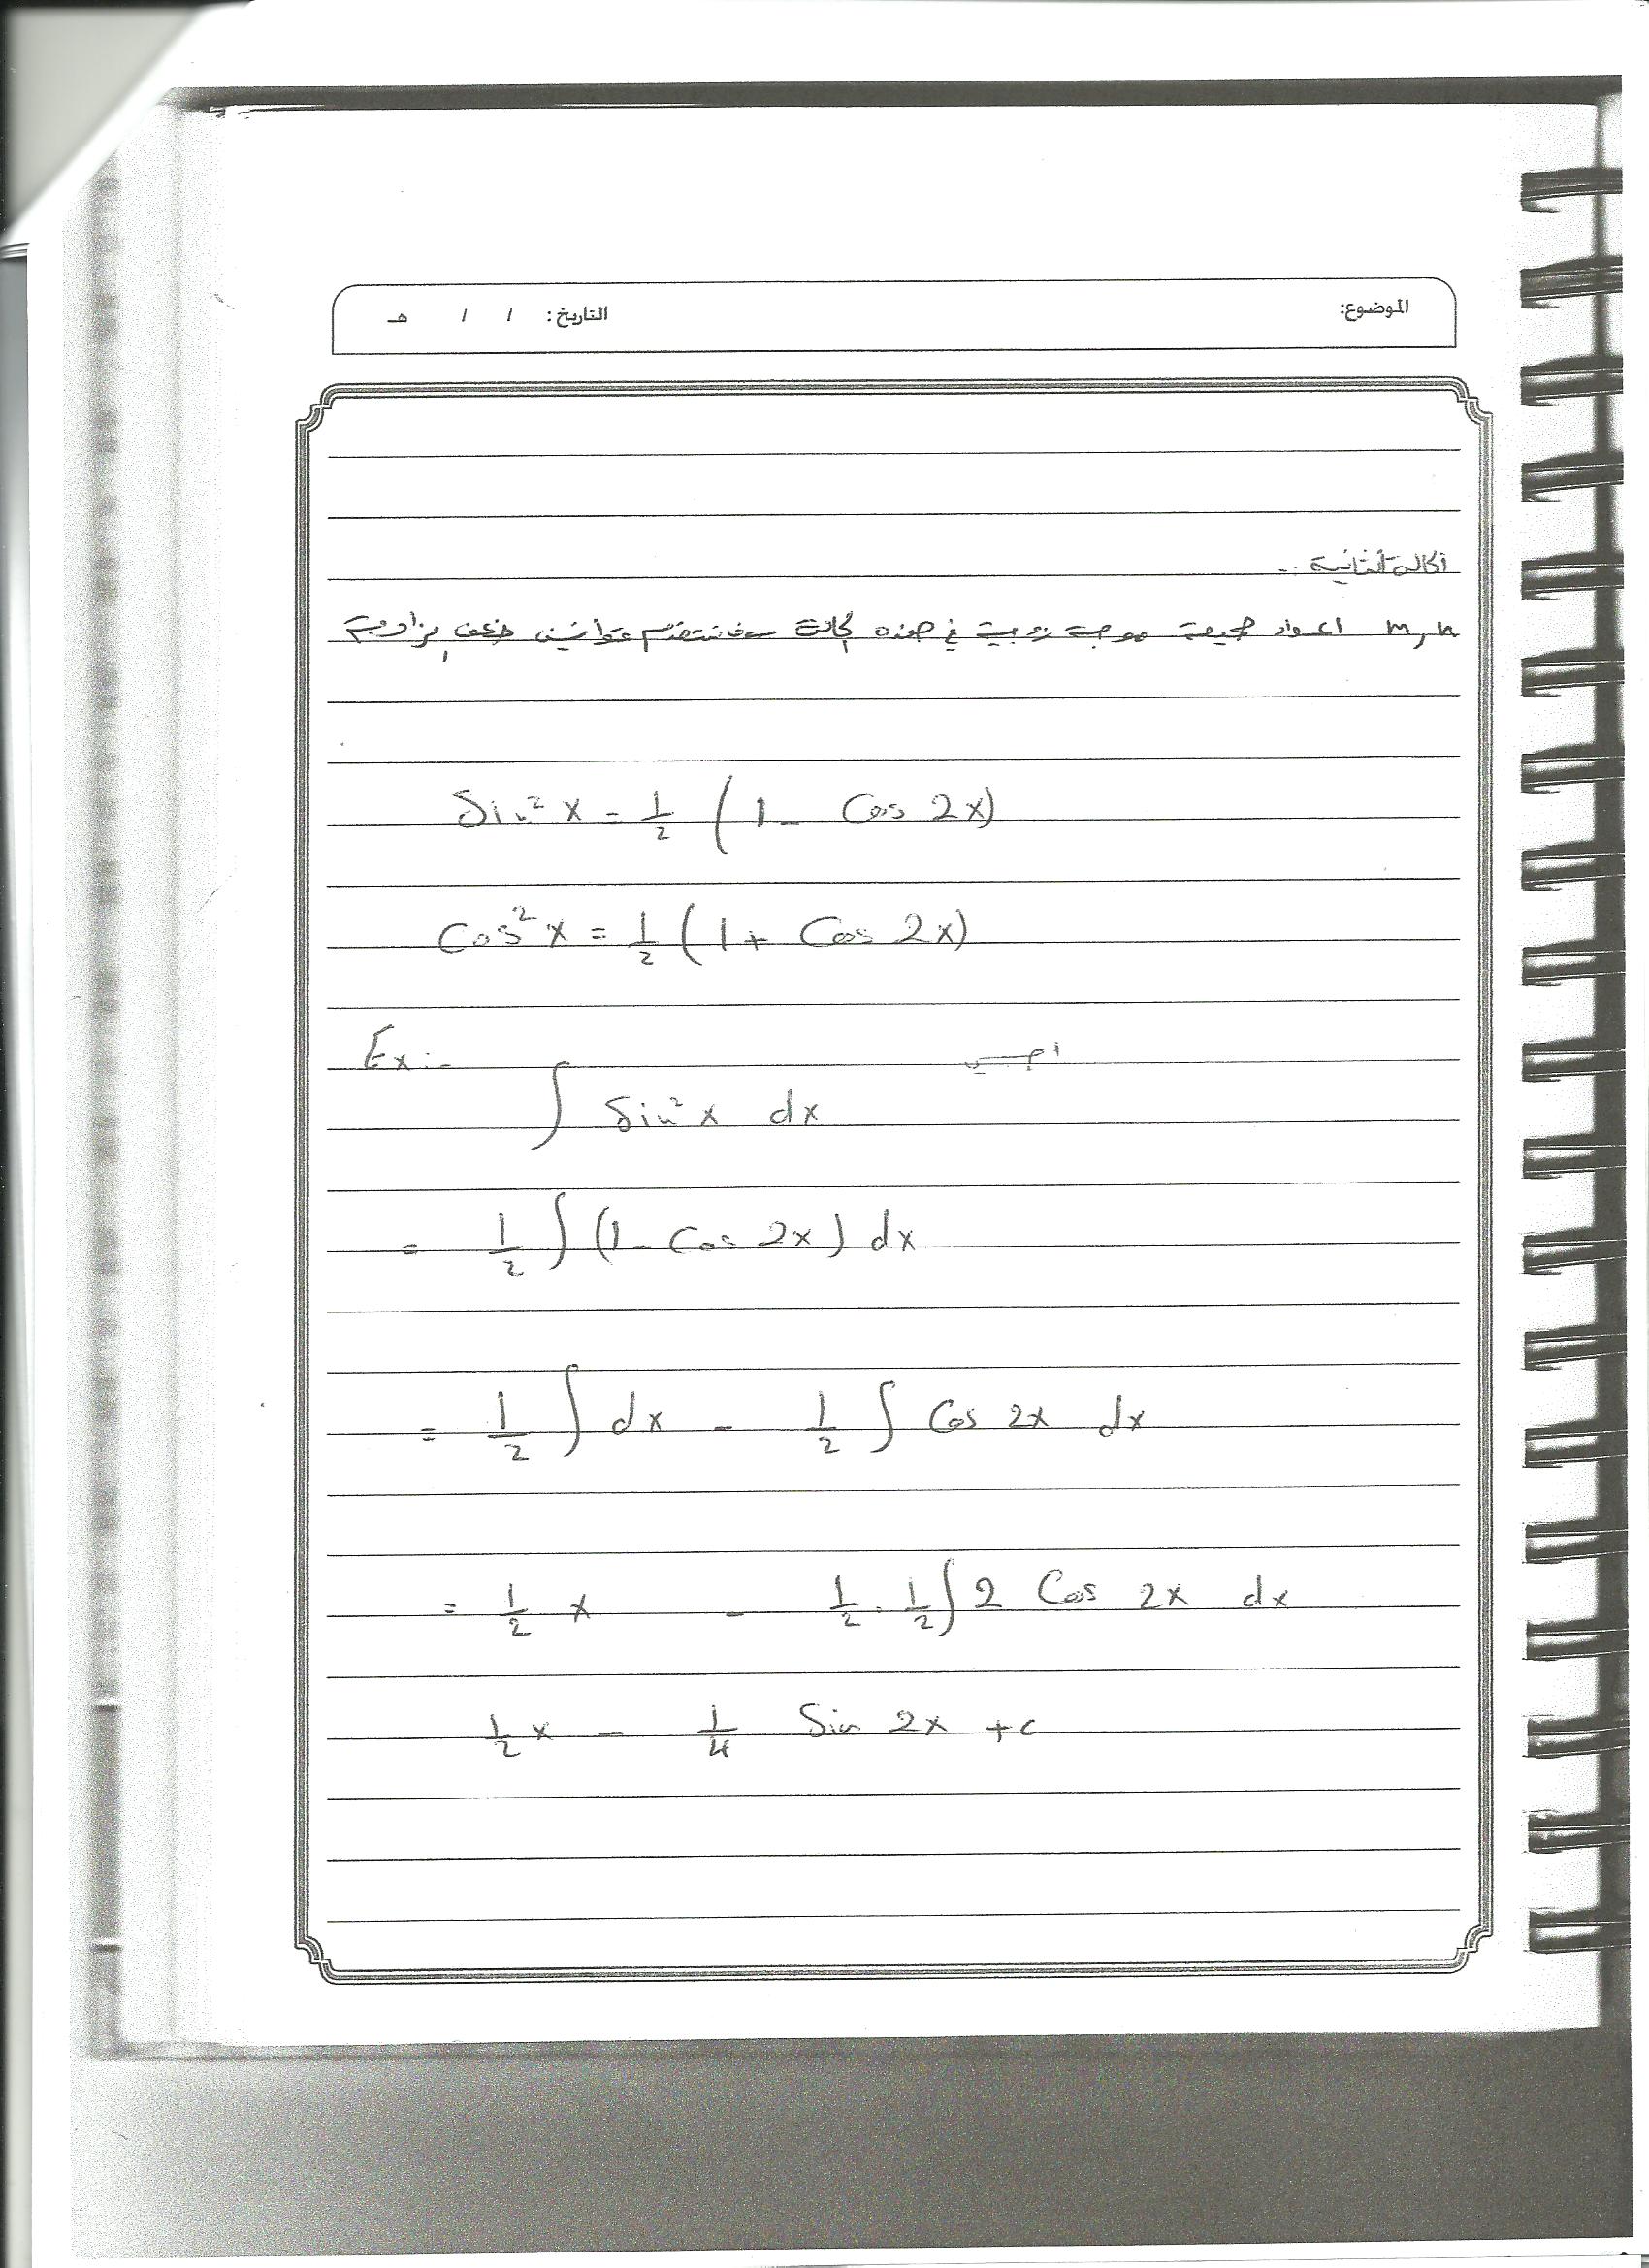 الموضوع: التاريخ: / / هـ
الحالة الثانية :-
m, n اعداد صحيحة موجبة زوجية في هذه الحالة سوف نستخدم قوانين ضعف الزاوية
Sin² x = 1/2 (1 - Cos 2x)
Cos² x = 1/2 (1 + Cos 2x)
Ex:- احسب
∫ Sin² x dx
= 1/2 ∫ (1 - Cos 2x) dx
= 1/2 ∫ dx - 1/2 ∫ Cos 2x dx
= 1/2 x - 1/2 . 1/2 ∫ 2 Cos 2x dx
1/2 x - 1/4 Sin 2x + c